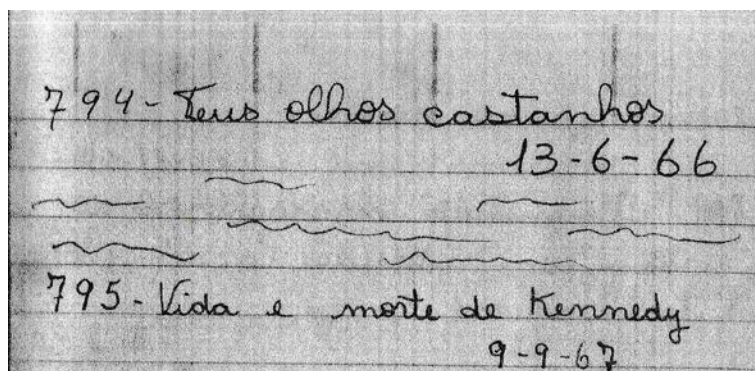 794- Teus olhos castanhos
13-6-66
795- Vida e morte de Kennedy
9-9-67